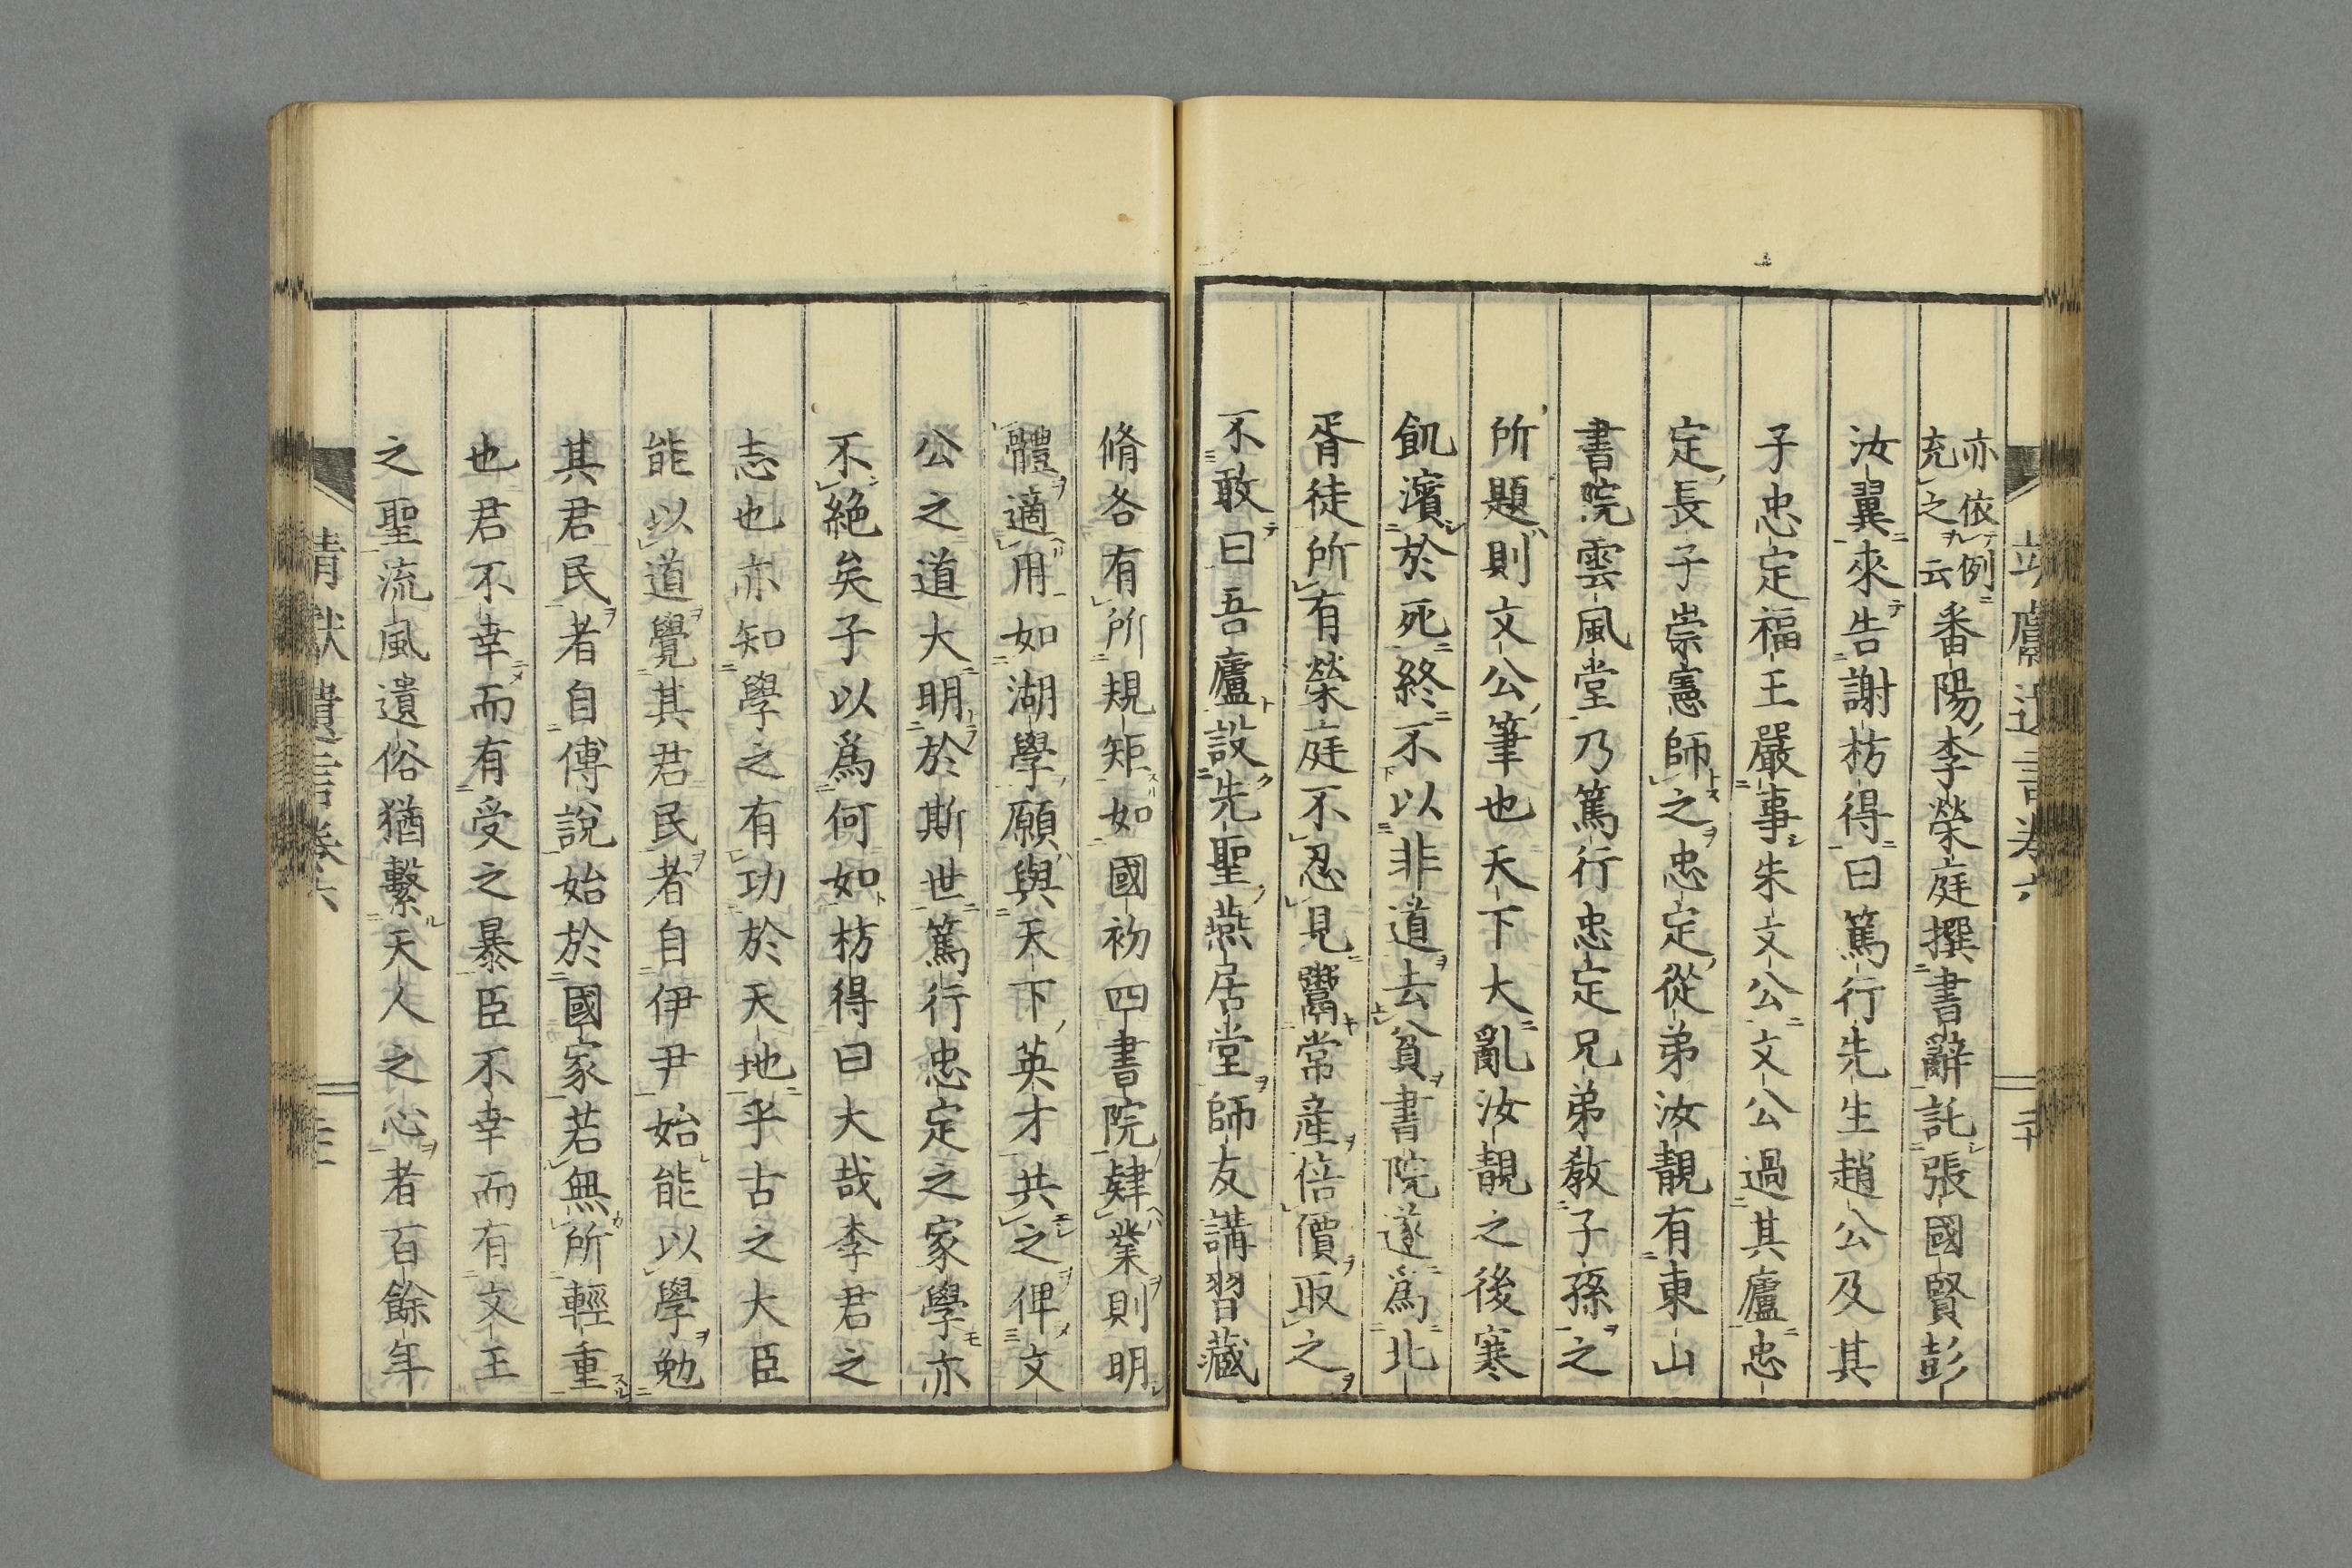 亦依例
充之云
番陽李榮庭撰書辭託張國賢彭
汝翼來告謝枋得曰篤行先生趙公及其
子忠定福王嚴事朱文公文公過其廬忠
定長子崇憲師之忠定從弟汝靚有東山
書院雲風堂乃篤行忠定兄弟敎子孫之
所題則文公筆也天下大亂汝靚之後寒
飢濱於死終不以非道去貧書院遂爲北
胥徒所有榮庭不忍見鬻常產倍價取之
不敢曰吾廬設先聖燕居堂師友講習藏
脩各有所規矩如國初四書院肄業則明
體適用如湖學願與天下英才共之俾文
公之道大明於斯世篤行忠定之家學亦
不絕矣子以爲何如枋得曰大哉李君之
志也亦知學之有功於天地乎古之大臣
能以道覺其君民者自伊尹始能以學勉
其君民者自傅說始於國家若無所輕重
也君不幸而有受之暴臣不幸而有文王
之聖流風遺俗猶繫天人之心者百餘年